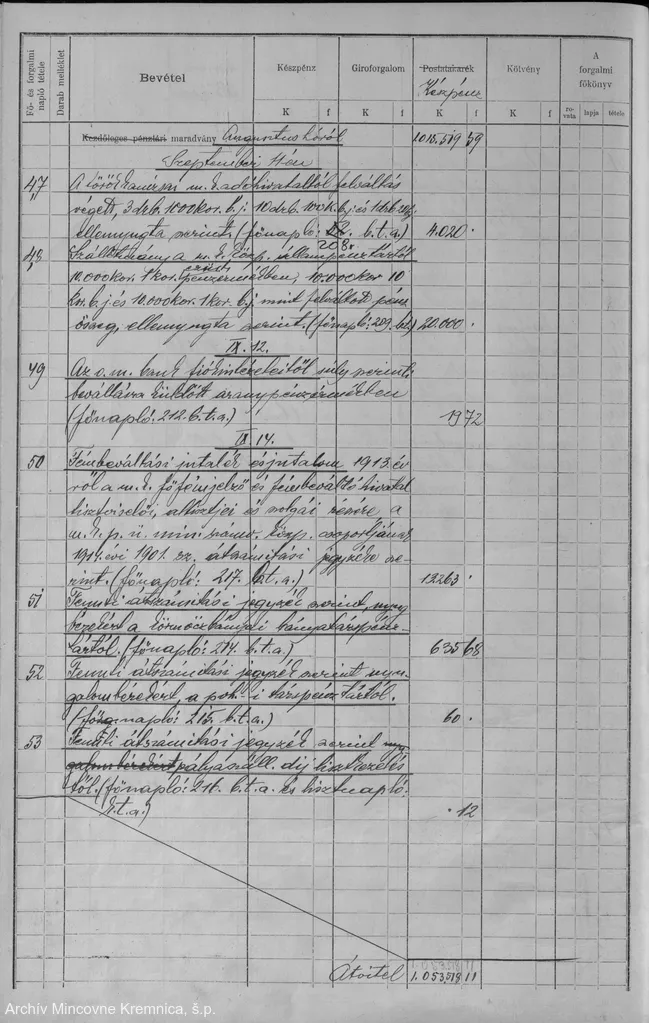 Fő- és forgalmi napló tétele
Darab melléklet
Bevétel
Készpénz
Giroforgalom
Postatakarék
Készpénz
Kötvény
A forgalmi főkönyv
K f K f K f K f rovata lapja tétele
Kezdőleges pénztári maradvány Augusztus hóról 1018.519 59
Szeptember hóan
47 A török kanizsai m. k. adóhivataltól felváltás
végett, 3 drb. 1000 kor. b. j. 10 drb. 100 K. b. j. és 1 drb. 20 f.
ellennyugta szerint. (főnapló: b. t. a.) 4.020 .
208.
48 Szállítmány a m. k. közp. állampénztártól
10.000 kor. 1 kor. ezüst pénzérmékben, 10.000 kor 10
kor. b. j. és 10.000 kor. 1 kor. b. j. mint felváltott pénz
összeg, ellennyugta szerint. (főnapló: 209. b. t.) 20.000 .
IX. 12.
49 Az o. m. bank fiókintézeteitől súly szerinti
beváltásra küldött aranypénzérmékben
(főnapló: 212. b. t. a.) 1972
IX. 14.
50 Fémbeváltási jutalék és jutalom 1913. év
ről a m. k. főfémjelző és fémbeváltó hivatal
tisztviselői, altisztjei és szolgái részére a
m. k. p. ü. min. számv. közp. csoportjának
1914. évi 1901. sz. átszámítási jegyzéke sze-
rint. (főnapló: 217. b. t. a.) 13263 .
51 Fennti átszámítási jegyzék szerint, nyug
bérekért a körmöczbányai bányatárspénz-
tártól. (főnapló: 214. b. t. a.) 635 68
52 Fennti átszámítási jegyzék szerint nyu-
galombérekért, a pok-i társpénztártól.
(főnapló: 215. b. t. a.) 60 .
53 Fennti átszámítási jegyzék szerint
pályaszáll. díj
(főnapló: 216. b. t. a. és tisztnapló:
b. t. a.) . 12
Átvitel 1.053518 11
Archív Mincovne Kremnica, š.p.